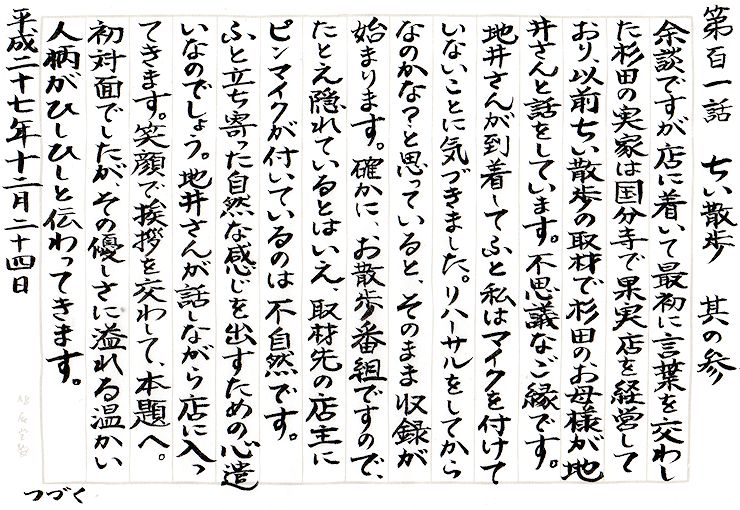 第百一話　ちい散歩　其の参
余談ですが店に着いて最初に言葉を交わし
た杉田の実家は国分寺で果実店を経営して
おり、以前ちい散歩の取材で杉田のお母様が地
井さんと話をしています。不思議なご縁です。
地井さんが到着してふと私はマイクを付けて
いないことに気づきました。リハーサルをしてから
なのかな?と思っていると、そのまま収録が
始まります。確かに、お散歩番組ですので、
たとえ隠れているとはいえ、取材先の店主に
ピンマイクが付いているのは不自然です。
ふと立ち寄った自然な感じを出すための心遣
いなのでしょう。地井さんが話しながら店に入っ
てきます。笑顔で挨拶を交わして、本題へ。
初対面でしたが、その優しさに溢れる温かい
人柄がひしひしと伝わってきます。
平成二十七年十二月二十四日
つづく